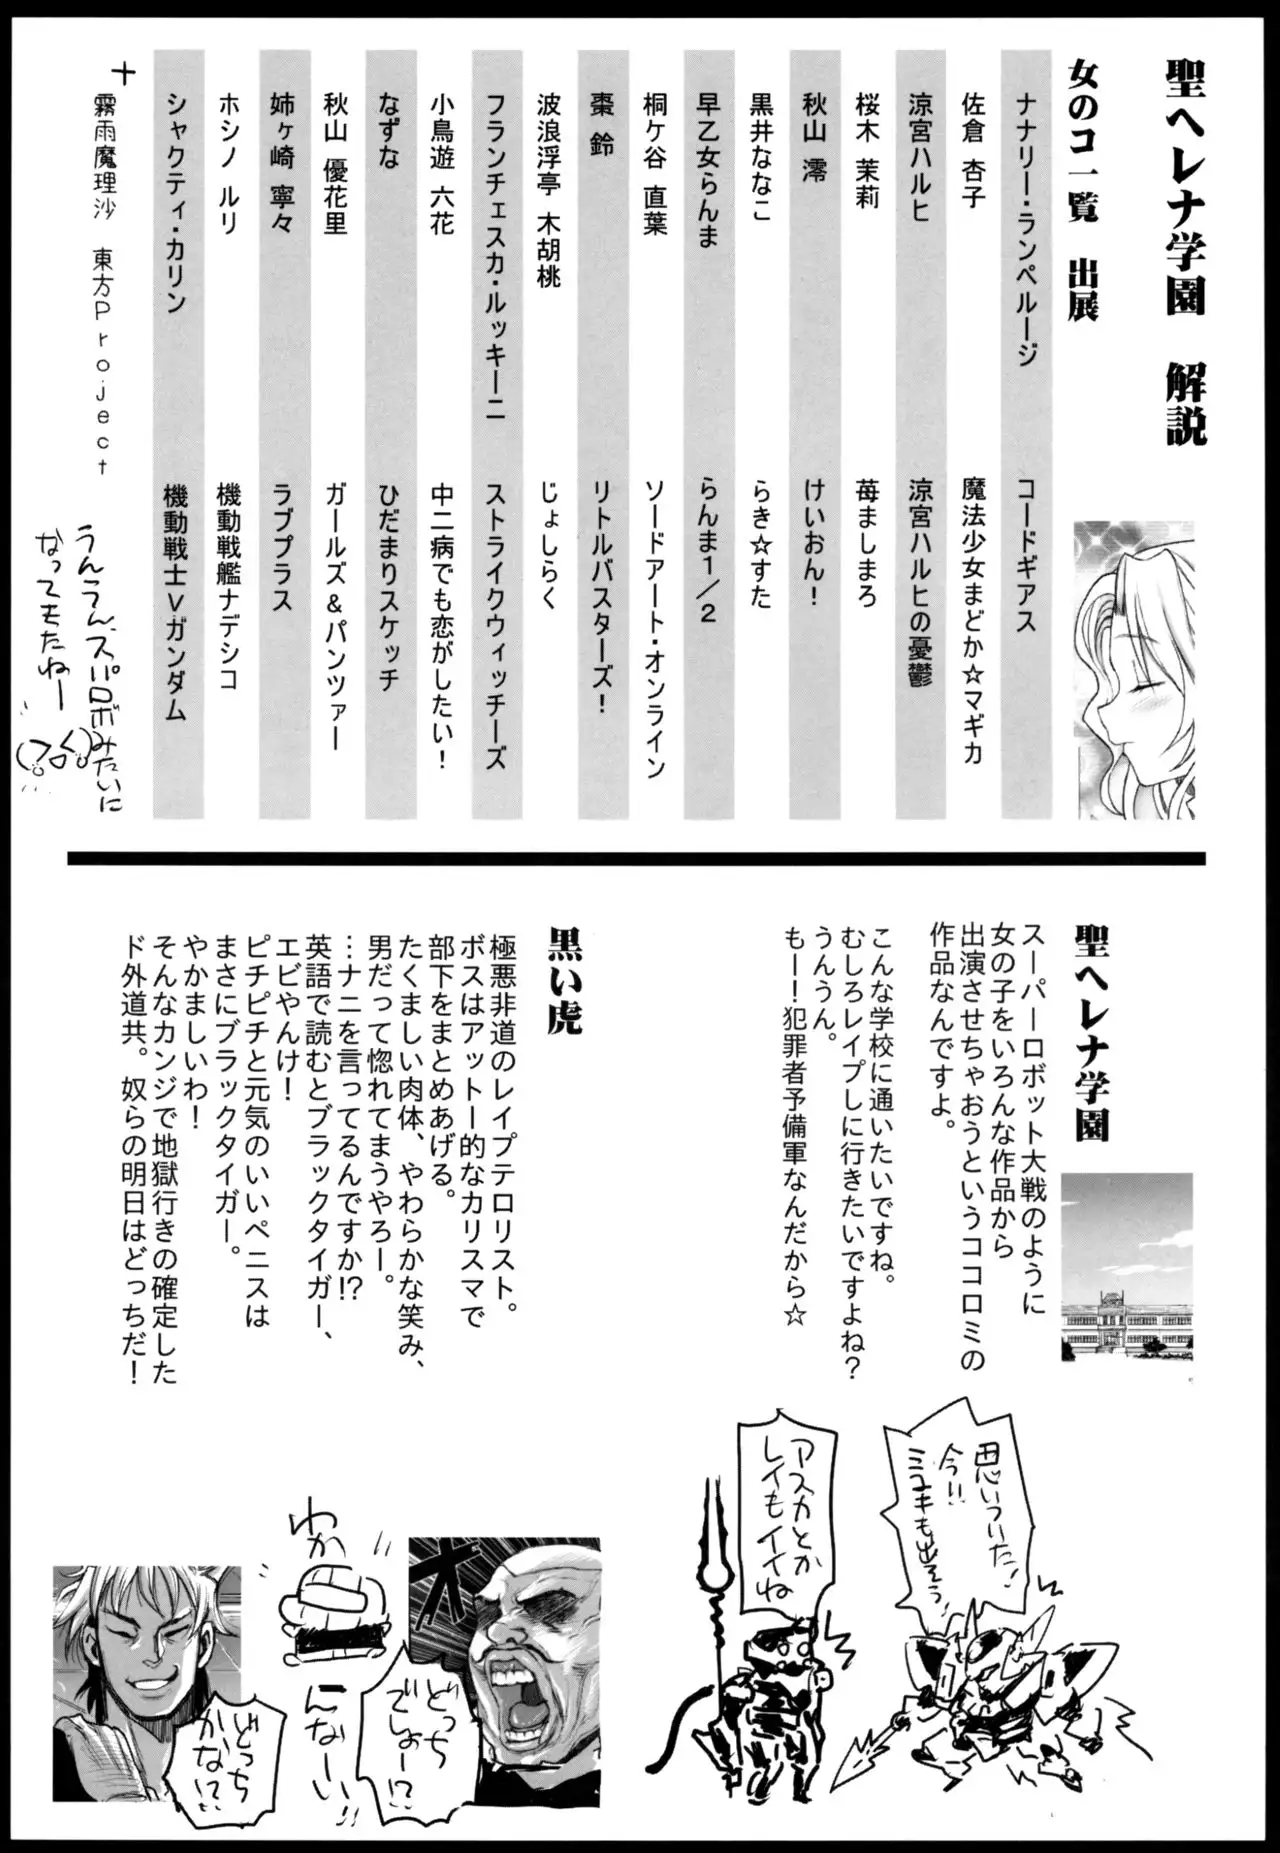 聖ヘレナ学園 解説
女のコ一覧 出展
ナナリー・ランペルージ コードギアス
佐倉 杏子 魔法少女まどか☆マギカ
涼宮ハルヒ 涼宮ハルヒの憂鬱
桜木 茉莉 苺ましまろ
秋山 澪 けいおん!
黒井ななこ らき☆すた
早乙女らんま らんま1/2
桐ケ谷 直葉 ソードアート・オンライン
棗 鈴 リトルバスターズ!
波浪浮亭 木胡桃 じょしらく
フランチェスカ・ルッキーニ ストライクウィッチーズ
小鳥遊 六花 中二病でも恋がしたい!
なずな ひだまりスケッチ
秋山 優花里 ガールズ&パンツァー
姉ヶ崎 寧々 ラブプラス
ホシノ ルリ 機動戦艦ナデシコ
シャクティ・カリン 機動戦士Vガンダム
+ 霧雨魔理沙 東方Project
うんうん、スパロボみたいに
なってきたねー
聖ヘレナ学園
スーパーロボット大戦のように
女の子をいろんな作品から
出演させちゃおうというココロミの
作品なんですよ。
こんな学校に通いたいですね。
むしろレイプしに行きたいですよね?
うんうん。
もー!犯罪者予備軍なんだから☆
思いついた!
今!!
ミユキも出そう!
アスカとか
レイもイイね
黒い虎
極悪非道のレイプテロリスト。
ボスはアットー的なカリスマで
部下をまとめあげる。
たくましい肉体、やわらかな笑み、
男だって惚れてまうやろー。
…ナニを言ってるんですか!?
英語で読むとブラックタイガー、
エビやんけ!
ピチピチと元気のいいペニスは
まさにブラックタイガー。
やかましいわ!
そんなカンジで地獄行きの確定した
ド外道共。奴らの明日はどっちだ!
どっち
でしょー!?
わか
んなーい!!
どっち
かな!?